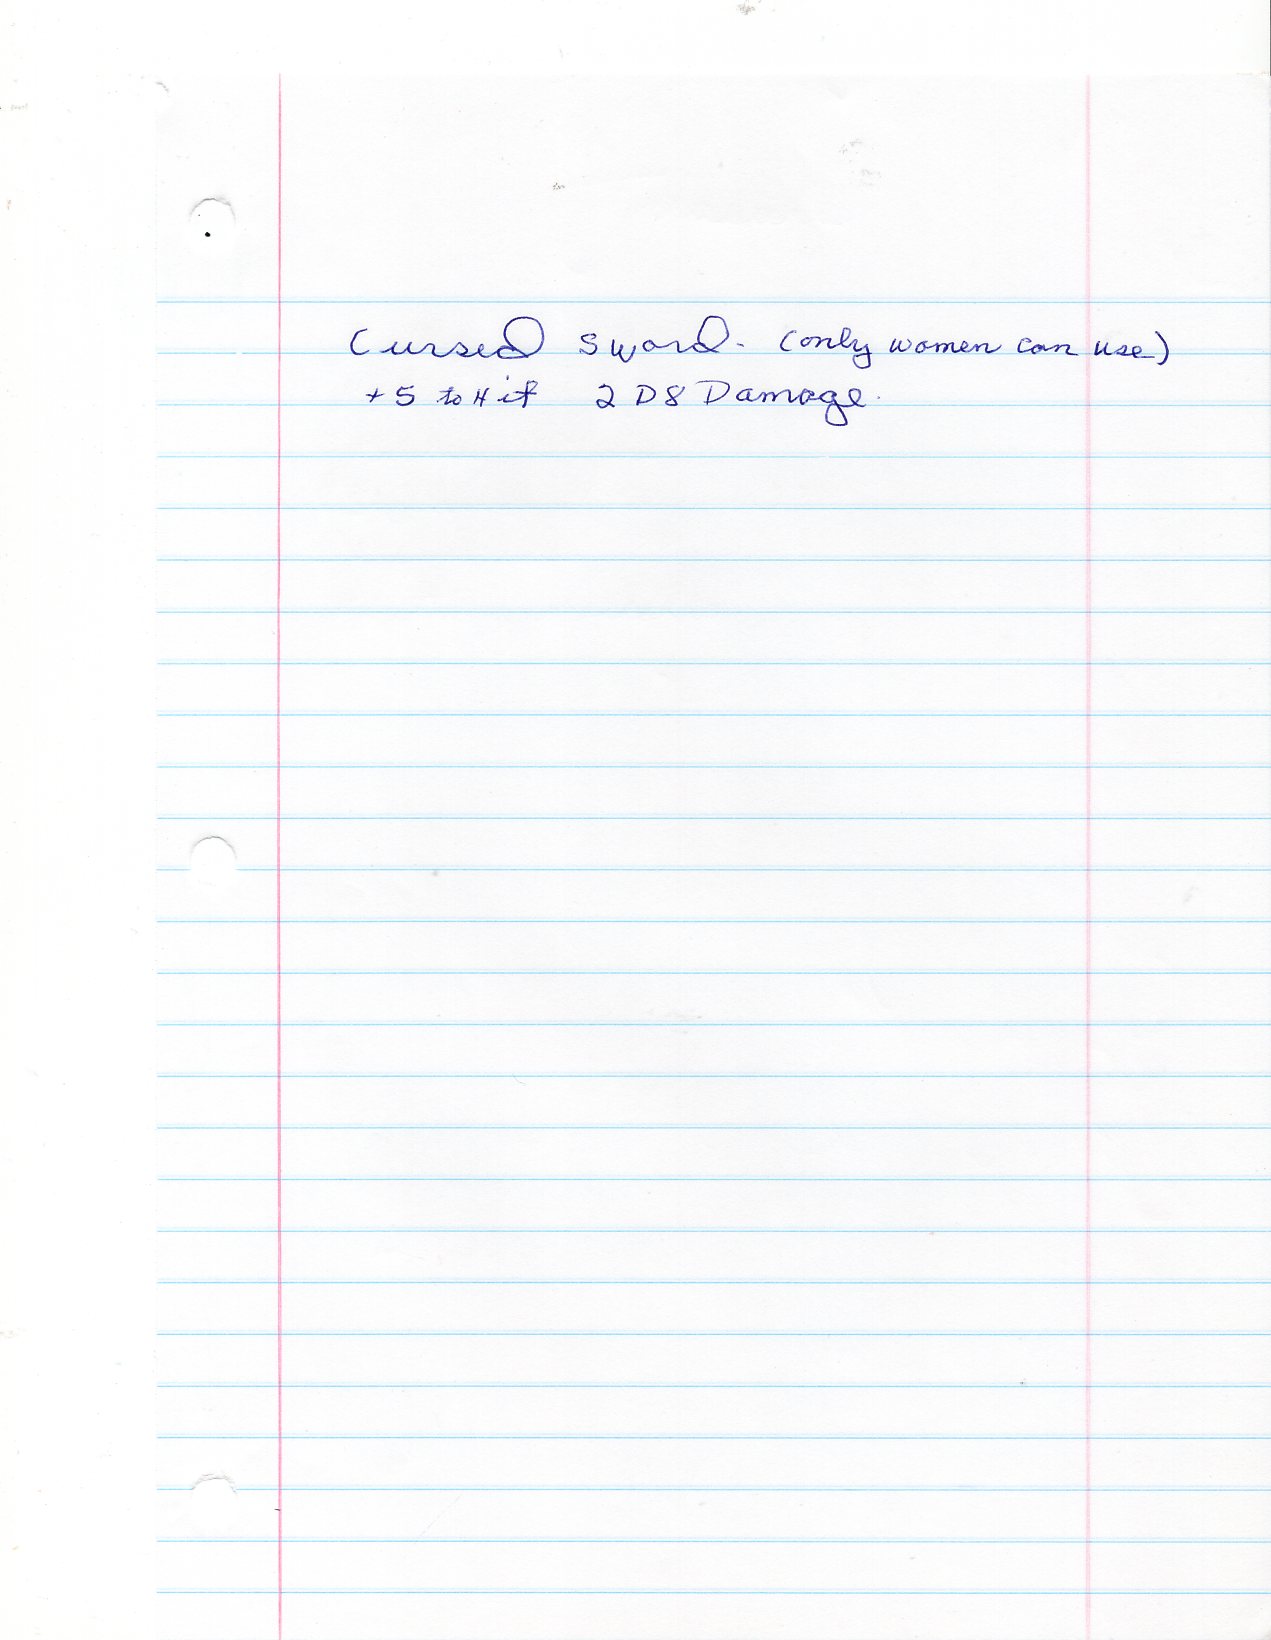 Cursed Sword - (only women can use)
+5 to Hit 2 D8 Damage.